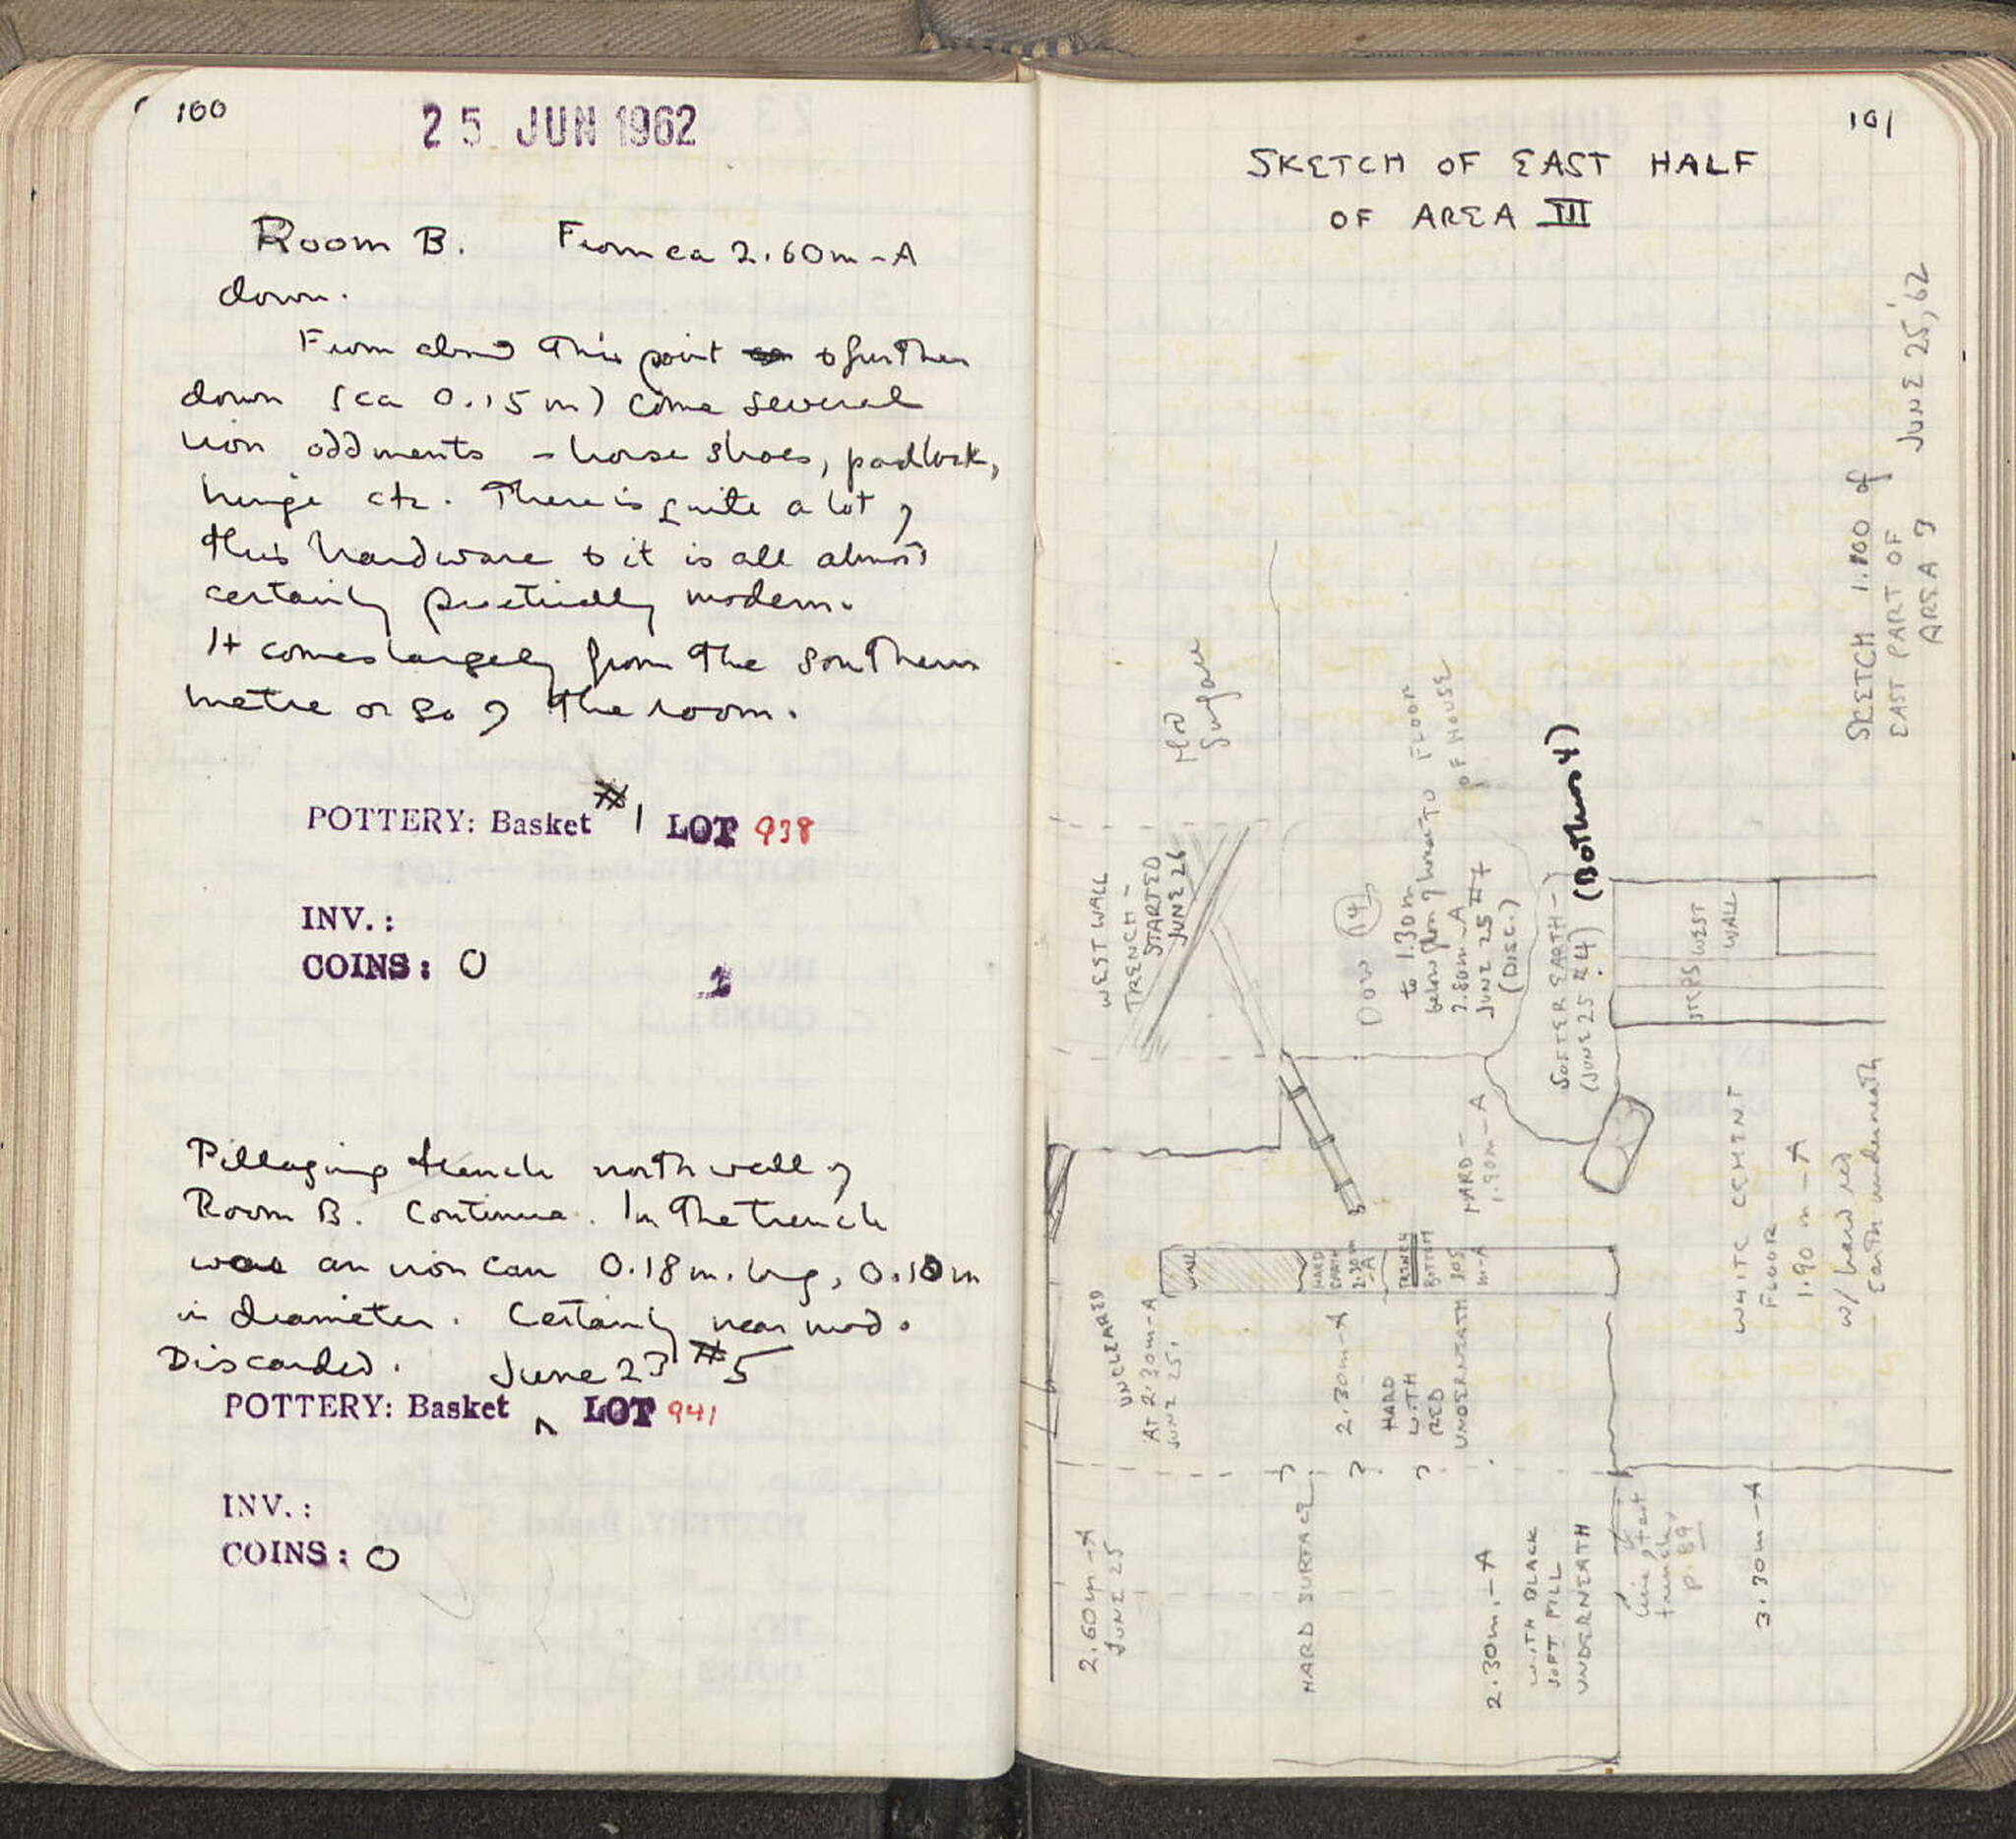 100
25 JUN 1962
Room B. From ca 2.60m-A
down.
From about this point & further
down (ca 0.15m) come several
iron oddments - horse shoes, padlock,
hinge etc. There is quite a lot of
this hardware & it is all almost
certainly practically modern.
It comes largely from the southern
metre or so of the room.
POTTERY: Basket #1 LOT 938
INV.:
COINS: 0
Pillaging trench north wall of
Room B. Continue. In the trench
was an iron can 0.18m. lng, 0.10m
in diameter. Certainly near mod.
Discarded. June 23 #5
POTTERY: Basket ^ LOT 941
INV.:
COINS: 0
101
SKETCH OF EAST HALF
OF AREA III
SKETCH 1:100 of
EAST PART OF
AREA 3 JUNE 25, '62
Mod
Surface
WEST WALL
TRENCH -
STARTED
JUNE 26
DOW 14
to 1.30m
below
TO FLOOR
OF HOUSE
2.80m-A
JUNE 25 #7
(DISC.)
SOFTER EARTH -
(JUNE 25 #4)
(Bothros 4)
STEPS
WEST
WALL
HARD -
1.90m-A
WALL
HARD
EARTH
2.30m
-A
TRENCH
BOTTOM
3.05
m-A
UNCLEARED
AT 2.30m-A
JUNE 25.
2.30m-A
HARD
WITH
RED
UNDERNEATH
WHITE CEMENT
FLOOR
1.90m-A
w/ hard red
earth underneath
2.60m-A
JUNE 25
HARD SURFACE
? ? ?
2.30m.-A
WITH BLACK
SOFT FILL
UNDERNEATH
line of test
trench,
p. 89
3.30m-A